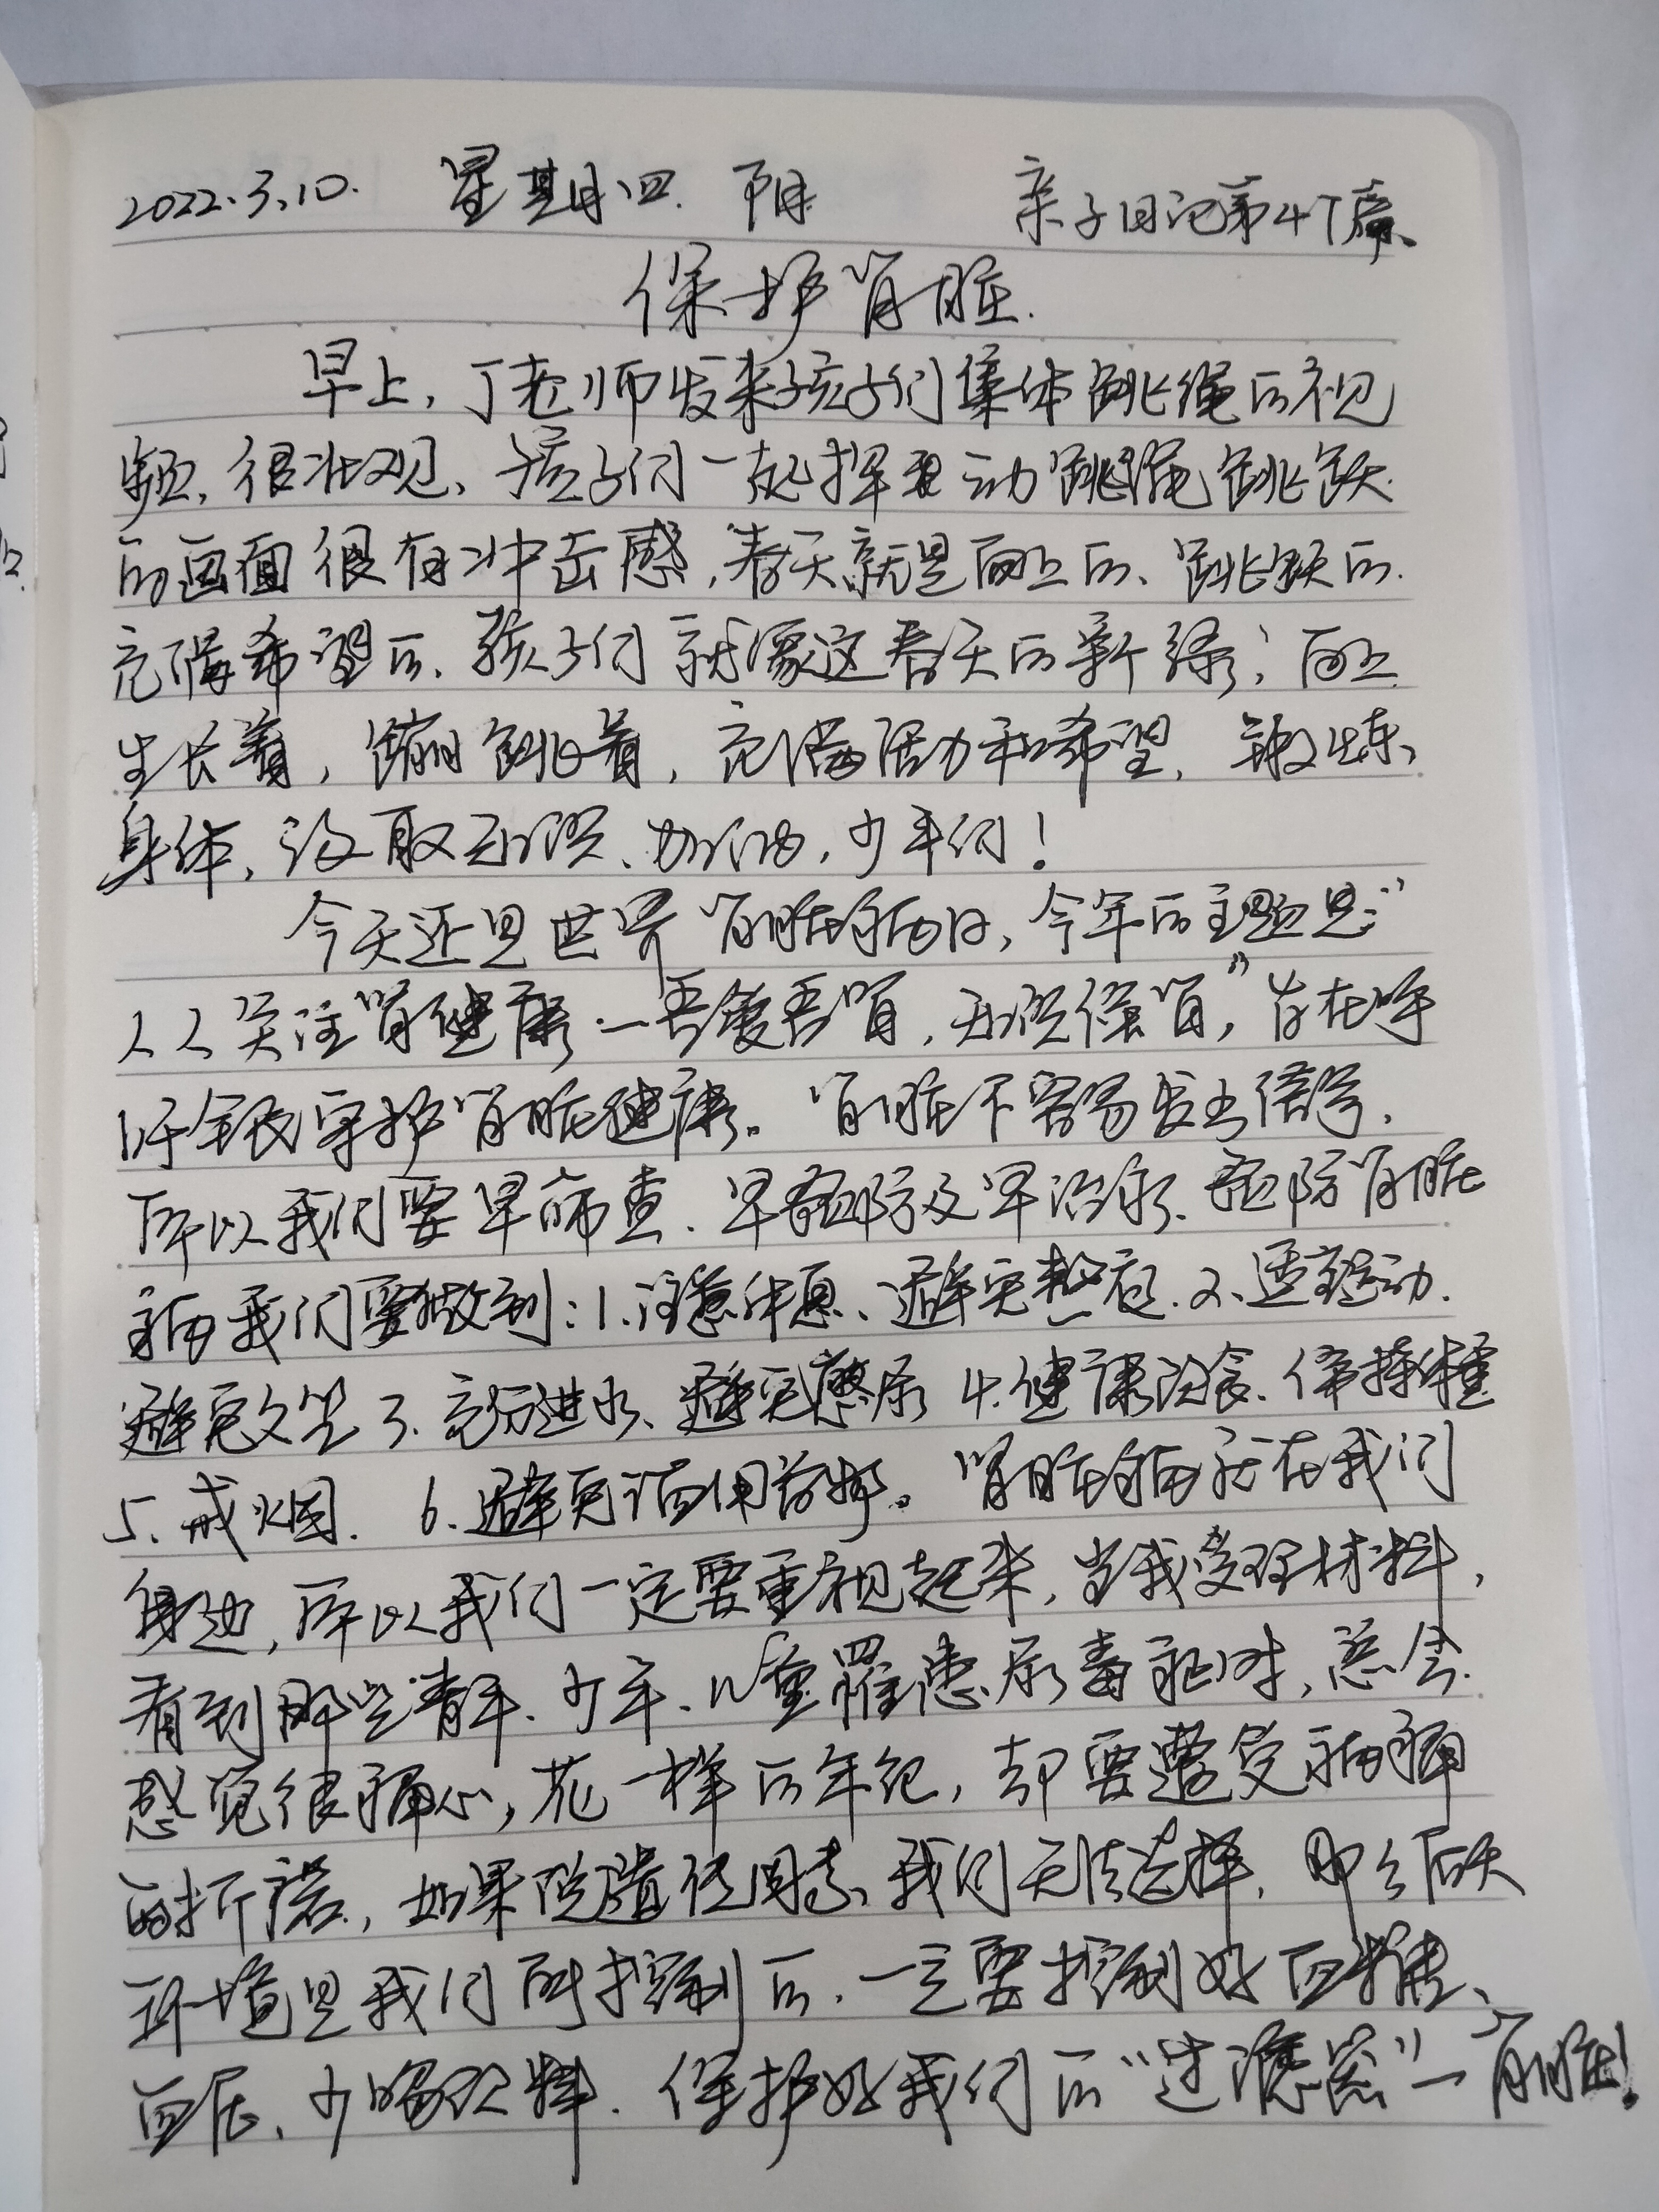 2022.3.10. 星期四. 阴 亲子日记第47篇.
保护肾脏.
早上,丁老师发来孩子们集体跳绳的视
频,很壮观、孩子们一起挥动跳绳跳跃
的画面很有冲击感,春天就是向上的、跳跃的.
充满希望的.孩子们就像这春天的新绿,向上
生长着,蹦跳着,充满活力和希望,锻炼
身体,没有取巧、加油,少年们!
今天还是世界肾脏病日,今年的主题是:"
人人关注肾健康·一吾爱吾肾,知识保肾",旨在呼
吁全民守护肾脏健康。肾脏不容易发出信号,
所以我们要早筛查.早预防及早治疗.预防肾脏
病我们要做到:1.注意休息、避免熬夜.2、适量运动.
避免久坐3.充分进水、避免憋尿 4.健康饮食.保持体重
5.戒烟. 6.避免滥用药物。肾脏病就在我们
身边,所以我们一定要重视起来,当我受理材料,
看到那些青年、少年、儿童罹患尿毒症时,总会
感觉很痛心,花一样的年纪,却要遭受病痛
的折磨,如果说遗传因素、我们无法选择,那么后天
环境是我们所控制的.一定要控制好血糖、
血压、少喝饮料.保护好我们的"过滤器"一肾脏!